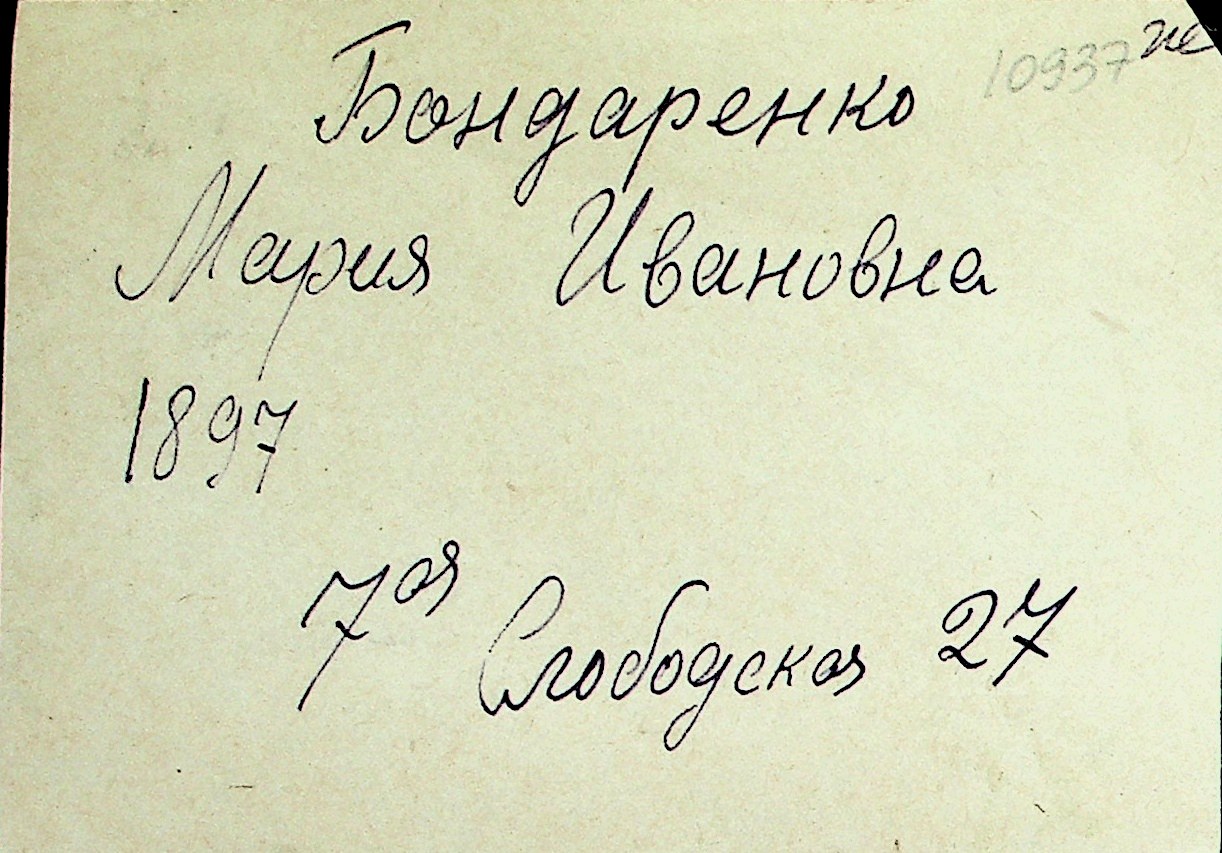 10937 же
Бондаренко
Мария Ивановна
1897
7ая Слободская 27